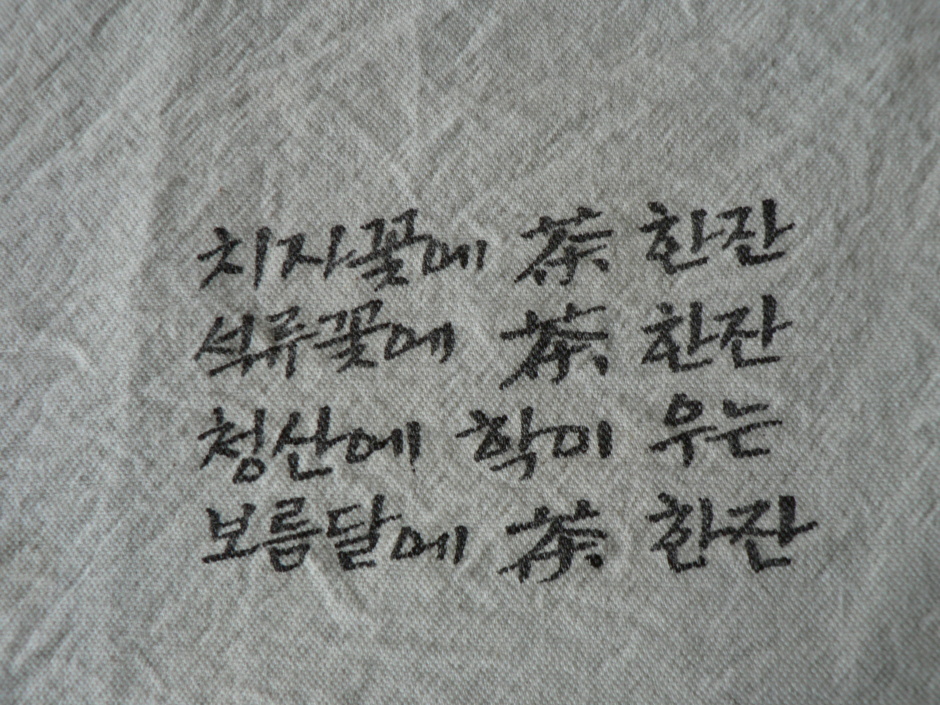 치자꽃에 茶 한잔
석류꽃에 茶 한잔
청산에 학이 우는
보름달에 茶 한잔